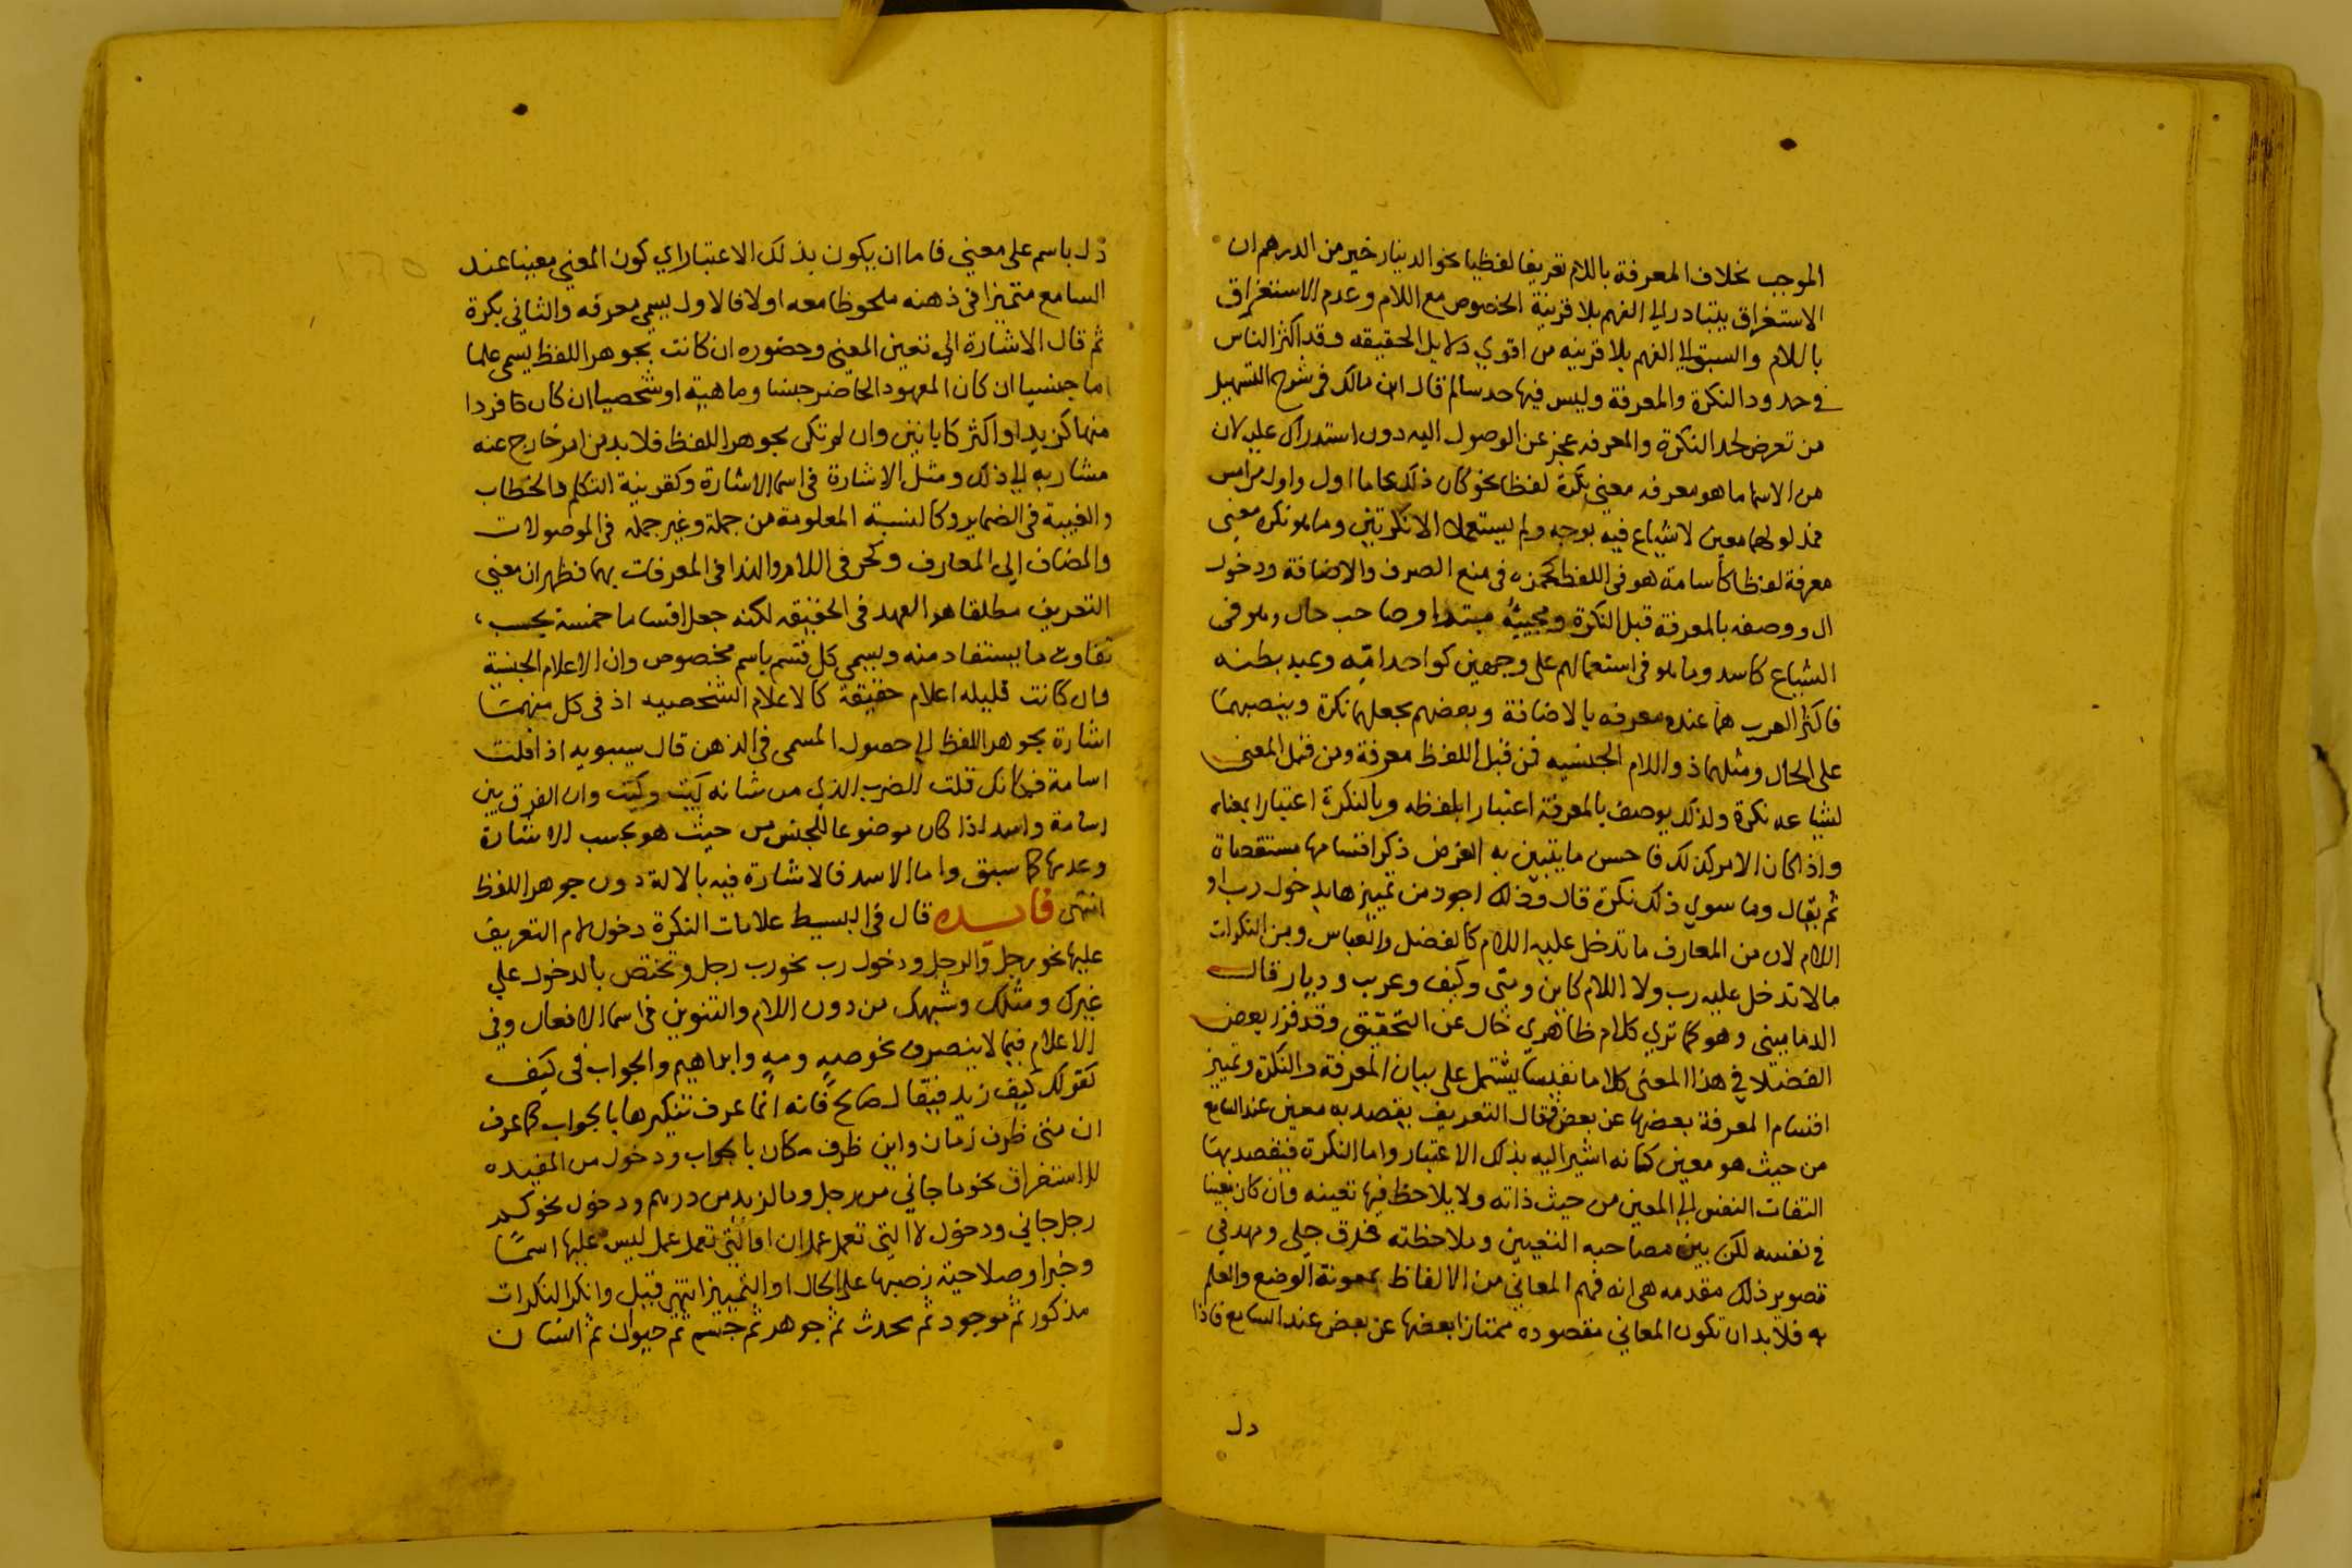 الموجب بخلاف المعرفة باللام تعريفا لفظيا نحو الدينار خير من الدرهم ان
الاستغراق يتبادر الي الفهم بلا قرينة الخصوص مع اللام وعدم الاستغراق
باللام والسبق الي الفهم بلا قرينه من اقوي دلايل الحقيقه وقد اكثر الناس
في حدود النكرة والمعرفة وليس فيها حد سالم قال ابن مالك في شرح التسهيل
من تعرض لحد النكرة والمعرفه عجز عن الوصول اليه دون استدراك عليه لان
من الاسما ما هو معرفه معني نكرة لفظا نحو كان ذلك عاما اول واول من امس
فمدلولهما معين لا شياع فيه بوجه ولم يستعملا الا نكرتين وما هو نكره معني
معرفة لفظا كأسامة هو في اللفظ كحمزه في منع الصرف والاضافة ودخول
ال ووصفه بالمعرفة قبل النكرة ومجيئه مبتدا وصاحب حال وهو في
الشياع كاسد وما هو في استعمالهم علي وجهين كواحد امّه وعبد بطنه
فاكثر العرب هما عنده معرفه بالاضافة وبعضهم يجعلهما نكرة وينصبهما
علي الحال ومثلهما ذو اللام الجنسيه فمن قبل اللفظ معرفة ومن قبل المعني
لشياعه نكرة ولذلك يوصف بالمعرفة اعتبارا بلفظه وبالنكرة اعتبارا بمعناه
واذا كان الامر كذلك فاحسن ما يتبين به الغرض ذكر اقسامها مستقصاة
ثم يقال وما سوي ذلك نكرة قال وذلك اجود من تمييزها بدخول رب او
اللام لان من المعارف ما تدخل عليه اللام كالفضل والعباس ومن النكرات
ما لا تدخل عليه رب ولا اللام كاين ومتى وكيف وعريب وديار قال
الدماميني وهو كما تري كلام ظاهري خال عن التحقيق وقد قرر بعض
الفضلا في هذا المعني كلاما نفيسا يشتمل علي بيان المعرفة والنكرة وتمييز
اقسام المعرفة بعضها عن بعض فقال التعريف يقصد به معين عند السامع
من حيث هو معين كانه اشير اليه بذلك الاعتبار واما النكرة فيقصد بها
التفات النفس الي المعين من حيث ذاته ولا يلاحظ فيها تعينه وان كان معينا
في نفسه لكن بين مصاحبه التعيين وملاحظته فرق جلي ومهد في
تصوير ذلك مقدمه هي انه فهم المعاني من الالفاظ بمعونة الوضع والعلم
به فلا بد ان تكون المعاني مقصوده ممتازا بعضها عن بعض عند السامع فاذا
دل
دل باسم علي معني فاما ان يكون بذلك الاعتبار اي كون المعني معينا عند
السامع متميزا في ذهنه ملحوظا معه اولا فالاول يسمي معرفه والثاني نكرة
ثم قال الاشارة الي تعين المعني وحضوره ان كانت بجوهر اللفظ يسمي علما
اما جنسيا ان كان المعهود الحاضر جنسا وماهية او شخصيا ان كان فردا
منها كزيد او اكثر كابانين وان لم تكن بجوهر اللفظ فلا بد من امر خارج عنه
مشار به الي ذلك ومثل الاشارة في اسما الاشارة وكقرينة التكلم والخطاب
والغيبة في الضماير وكالنسبة المعلومة من جملة وغير جمله في الموصولات
والمضاف الي المعارف وكحرفي اللام والندا في المعرفات بهما فظهر ان معني
التعريف مطلقا هو العهد في الحقيقه لكنه جعل اقساما خمسة بحسب
تفاوت ما يستفاد منه ويسمي كل قسم باسم مخصوص وان الاعلام الجنسية
وان كانت قليله اعلام حقيقة كالاعلام الشخصيه اذ في كل منهما
اشارة بجوهر اللفظ الي حصول المسمي في الذهن قال سيبويه اذا قلت
اسامة فكانك قلت الضرب الذي من شانه كيت وكيت وان الفرق بين
اسامة واسد اذا كان موضوعا للجنس من حيث هو بحسب الاشارة
وعدمها كما سبق واما الاسد فالاشارة فيه بالالة دون جوهر اللفظ
انتهي فايده قال في البسيط علامات النكرة دخول لام التعريف
عليها نحو رجل والرجل ودخول رب نحو رب رجل وتختص بالدخول علي
غيرك ومثلك وشبهك من دون اللام والتنوين في اسما الافعال وفي
الاعلام فيما لا ينصرف نحو صهٍ ومهٍ وابراهيم والجواب في كيف
كقولك كيف زيد فيقال صالح فانه انما عرف تنكيرها بالجواب كما عرف
ان متي ظرف زمان واين ظرف مكان بالجواب ودخول من المفيده
للاستغراق نحو ما جاني من رجل وما لزيد من درهم ودخول نحو كم
رجل جاني ودخول لا التي تعمل عمل ان او التي تعمل عمل ليس عليها اسما
وخبرا وصلاحيه نصبها علي الحال او التمييز انتهي قيل وانكر النكرات
مذكور ثم موجود ثم محدث ثم جوهر ثم جسم ثم حيوان ثم انسان